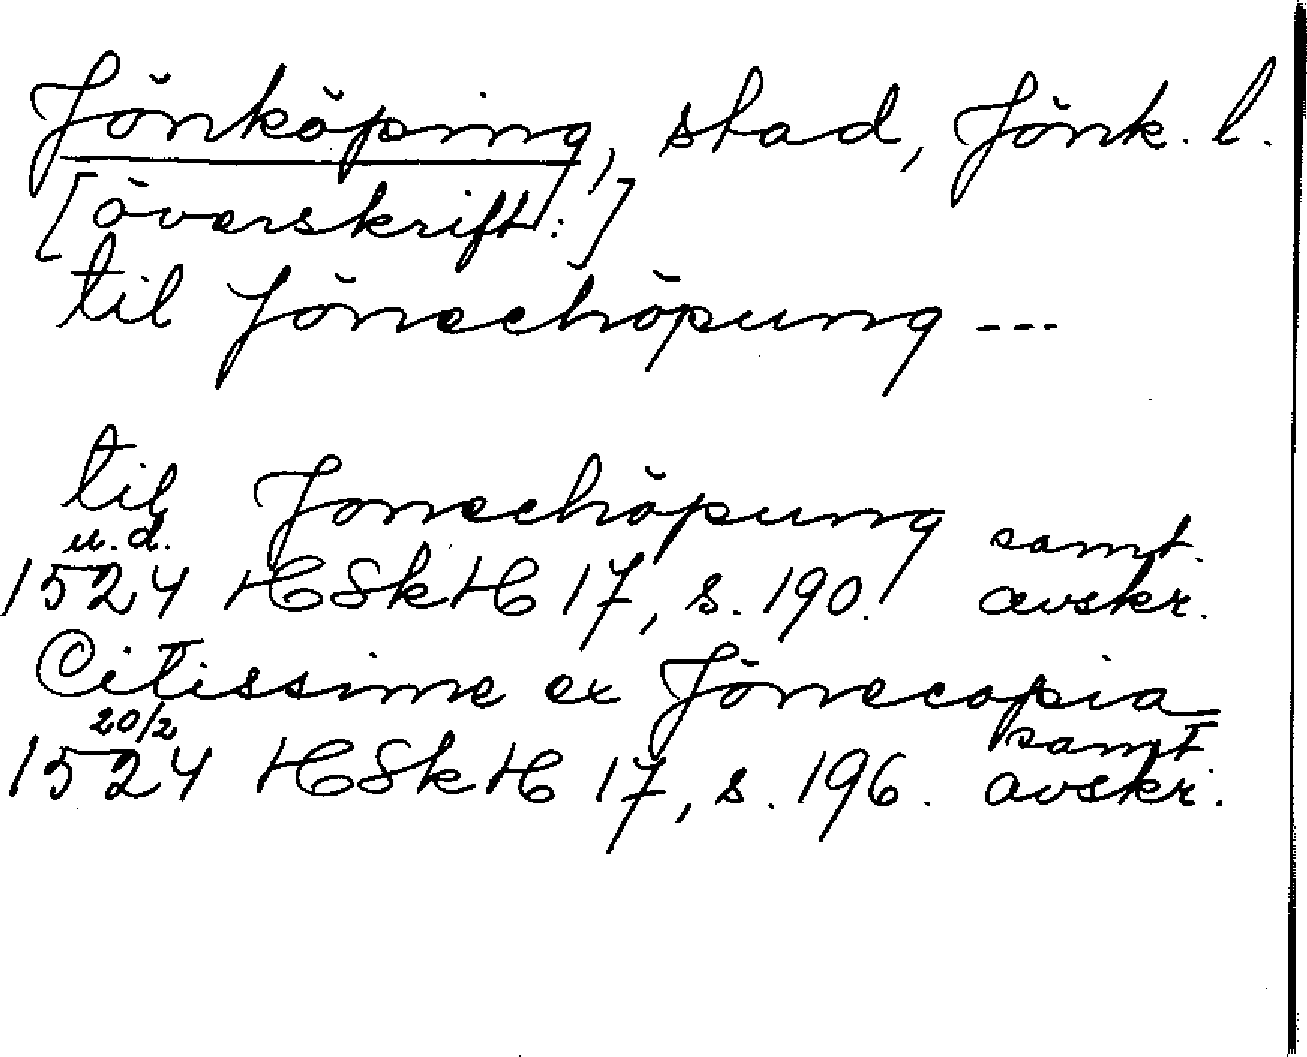 Jönköping, stad, Jönk. l.
[överskrift:]
til Jönechöpung ---
til Jonechöpung
u.d. samt.
1524 HSkH 17, s. 190. avskr.
Citissime ex Jönecopia
20/2 samt
1524 HSkH 17, s. 196. avskr.